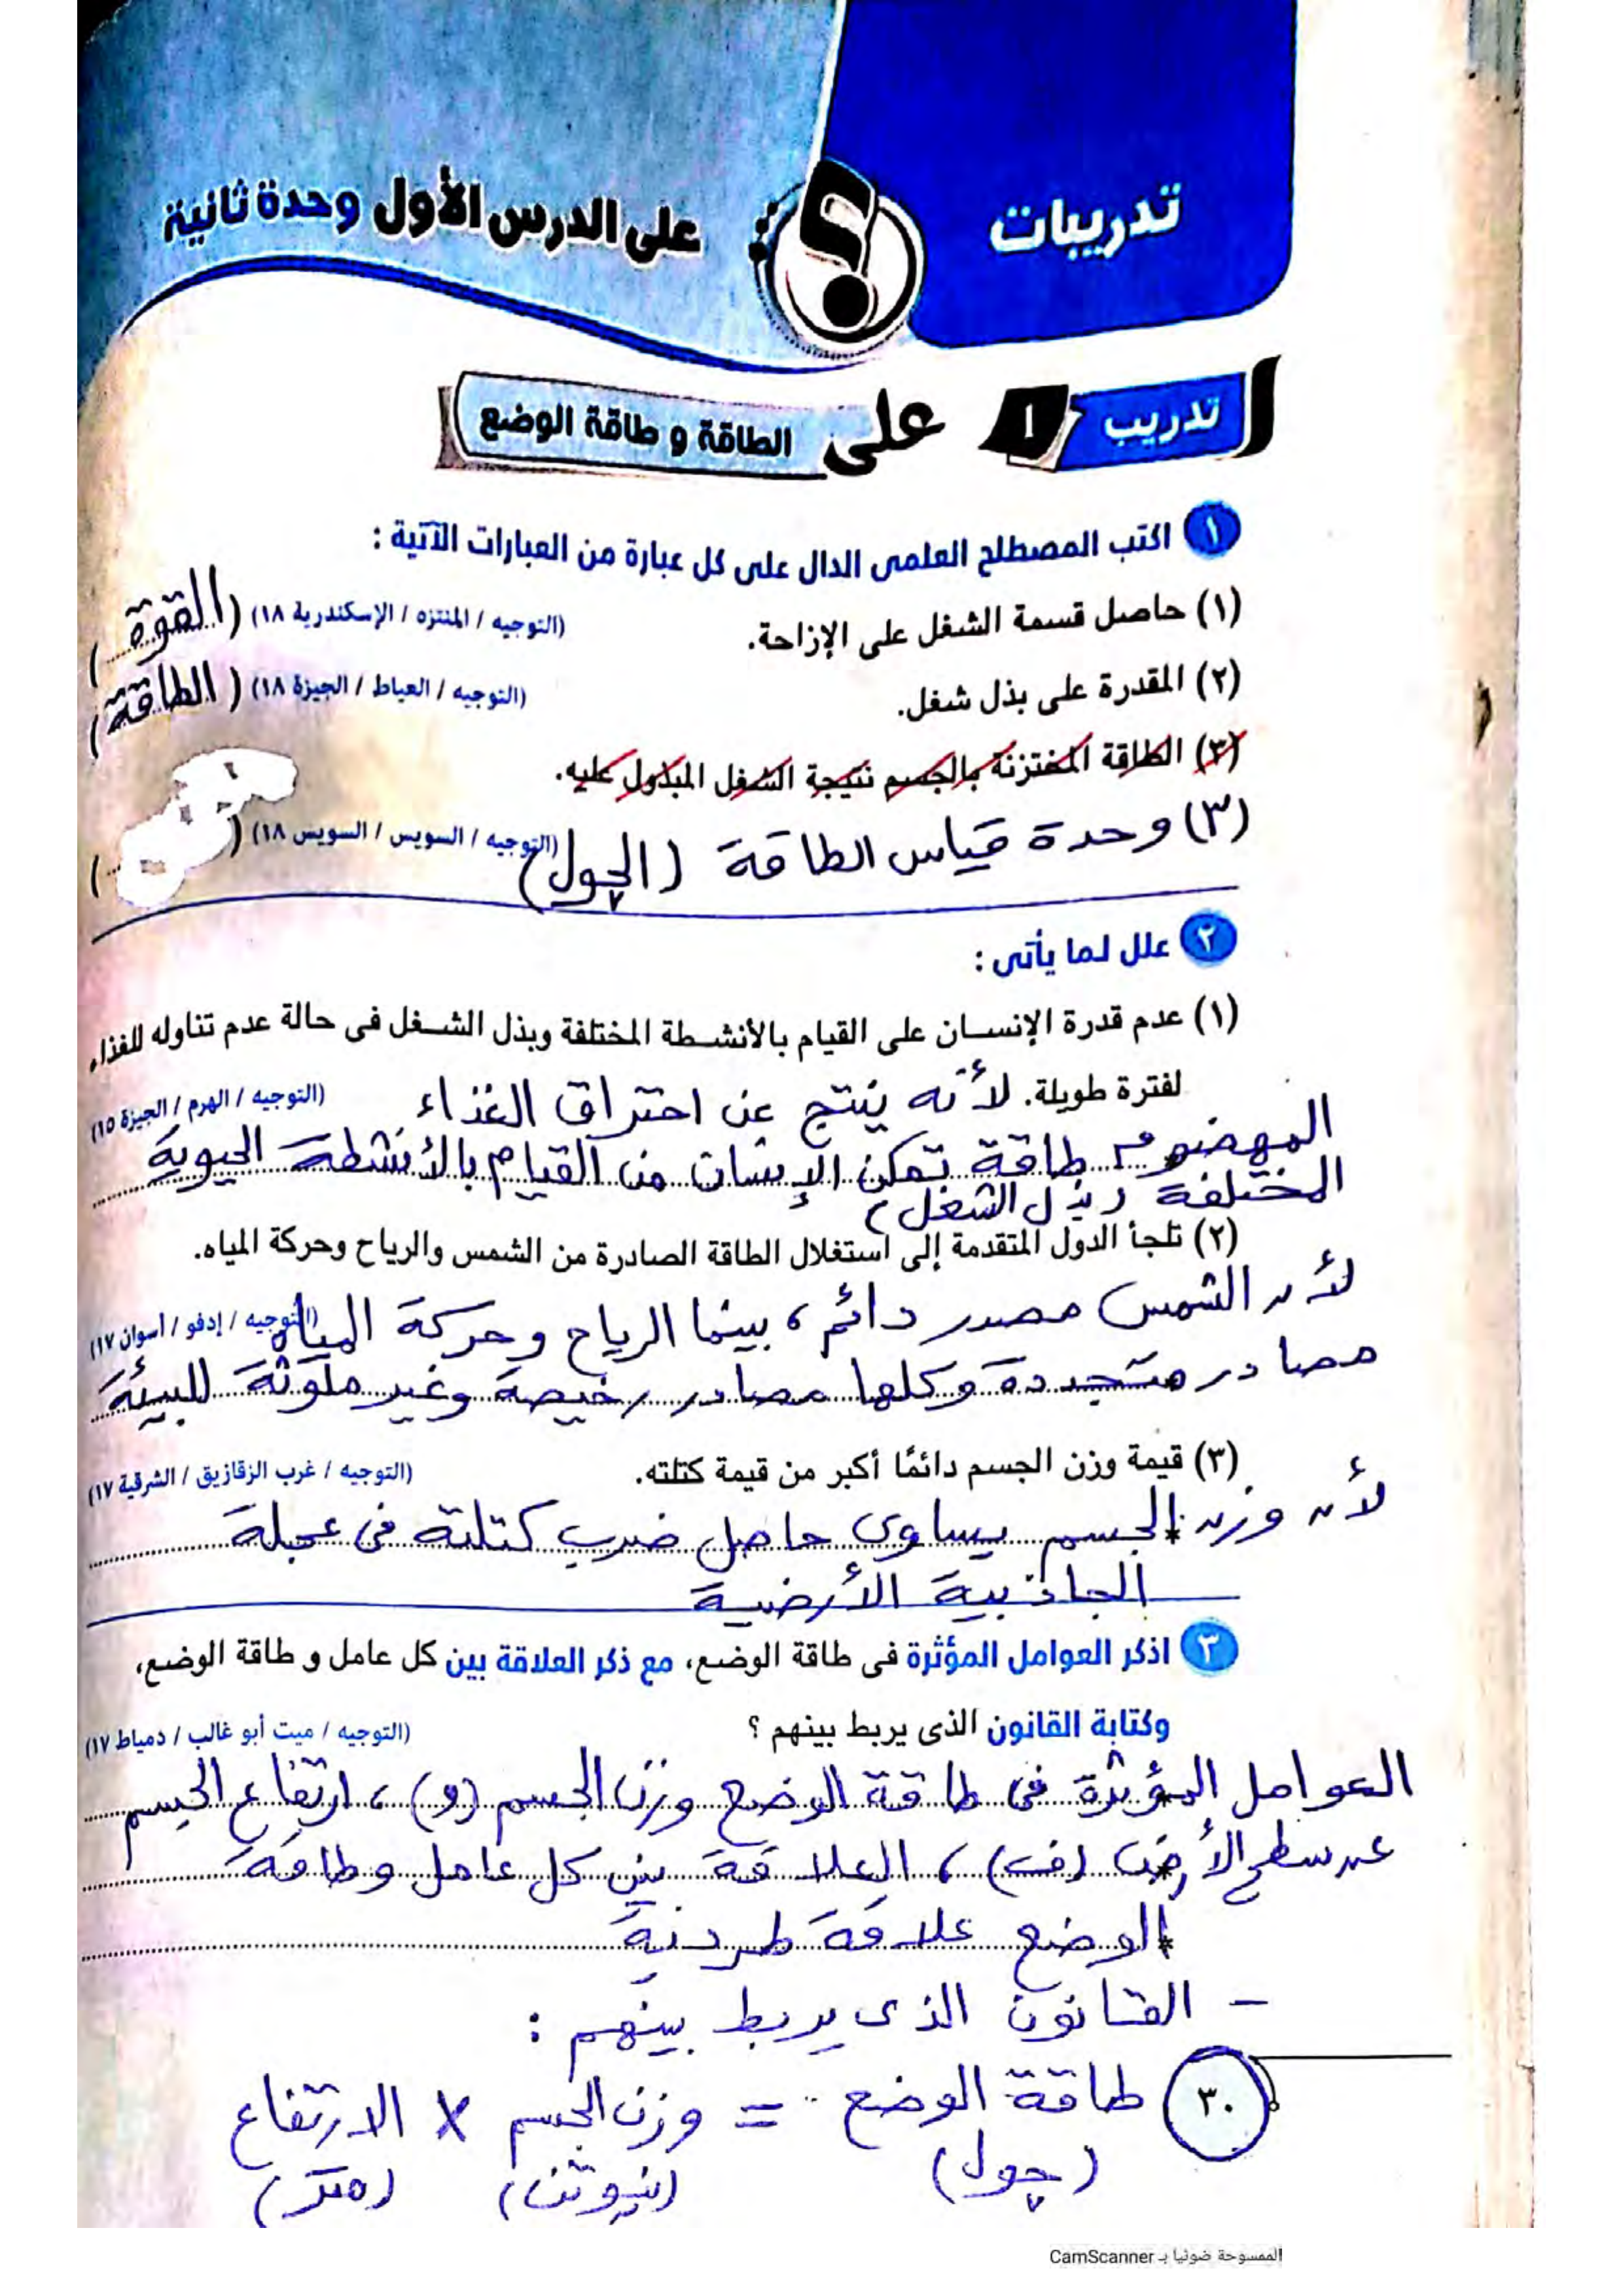 تدريبات
على الدرس الأول وحدة ثانية
تدريب ١ على الطاقة و طاقة الوضع
١ اكتب المصطلح العلمى الدال على كل عبارة من العبارات الآتية :
(١) حاصل قسمة الشغل على الإزاحة. (التوجيه / المنتزه / الإسكندرية ١٨) (القوة)
(٢) المقدرة على بذل شغل. (التوجيه / العياط / الجيزة ١٨) (الطاقة)
(٣) الطاقة المختزنة بالجسم نتيجة الشغل المبذول عليه.
(٣) وحدة قياس الطاقة (الجول) (التوجيه / السويس / السويس ١٨) ( )
٢ علل لما يأتى :
(١) عدم قدرة الإنسان على القيام بالأنشطة المختلفة وبذل الشغل فى حالة عدم تناوله للغذاء
لفترة طويلة. لأنه ينتج عن احتراق الغذاء (التوجيه / الهرم / الجيزة ١٥)
المهضوم طاقة تمكن الإنسان من القيام بالأنشطة الحيوية
المختلفة (بذل الشغل)
(٢) تلجأ الدول المتقدمة إلى استغلال الطاقة الصادرة من الشمس والرياح وحركة المياه.
لأن الشمس مصدر دائم، بينما الرياح وحركة المياه (التوجيه / إدفو / أسوان ١٧)
مصادر متجددة وكلها مصادر رخيصة وغير ملوثة للبيئة
(٣) قيمة وزن الجسم دائمًا أكبر من قيمة كتلته. (التوجيه / غرب الزقازيق / الشرقية ١٧)
لأن وزن الجسم يساوى حاصل ضرب كتلته فى عجلة
الجاذبية الأرضية
٣ اذكر العوامل المؤثرة فى طاقة الوضع، مع ذكر العلاقة بين كل عامل و طاقة الوضع،
وكتابة القانون الذى يربط بينهم ؟ (التوجيه / ميت أبو غالب / دمياط ١٧)
العوامل المؤثرة فى طاقة الوضع وزن الجسم (و)، ارتفاع الجسم
عن سطح الأرض (ف)، العلاقة بين كل عامل وطاقة
الوضع علاقة طردية
- القانون الذى يربط بينهم :
طاقة الوضع = وزن الجسم × الارتفاع
(جول) (نيوتن) (متر)
٣٠
الممسوحة ضوئيا بـ CamScanner